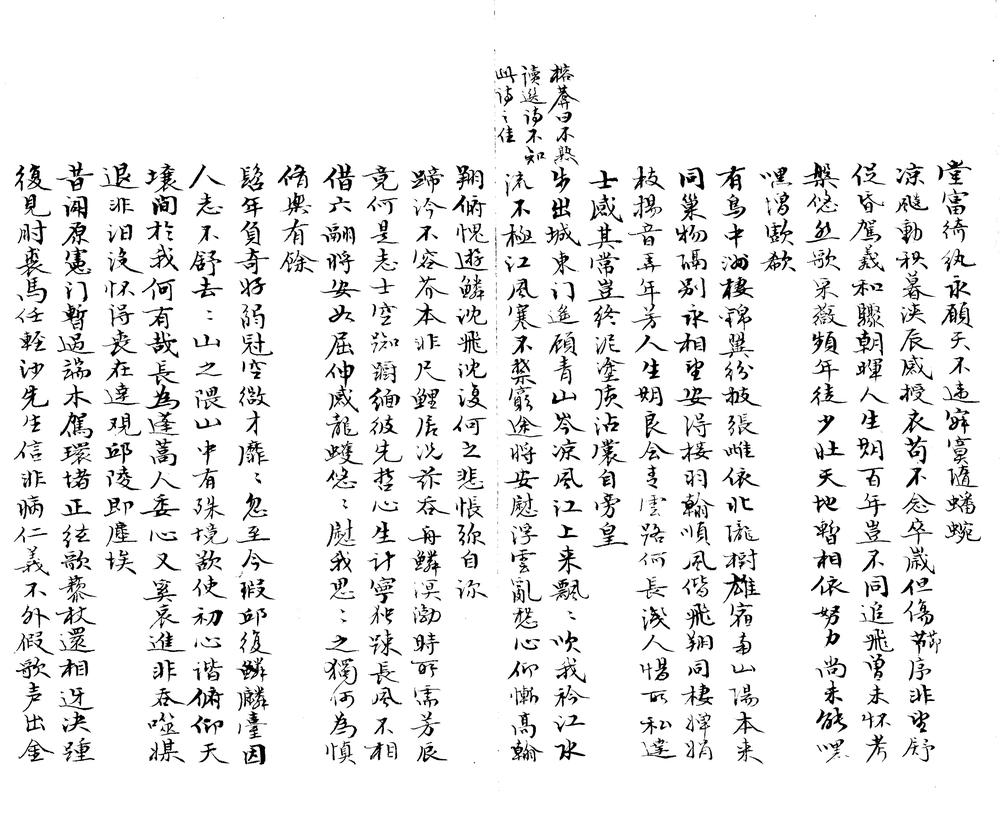 堂富绮纨永愿天不违寂寞随蟠蜿
凉飚動秋暮浃辰感授衣苟不念卒歲但傷節序非望舒
促宵駕羲和驟朝暉人生期百年豈不同追飛曾未怀考
槃悠然歌采薇頻年徒少壮天地暫相依努力尚未能嘿
嘿增歔欷
有鳥中洲棲錦翼纷披張雌依北隴樹雄宿南山陽本来
同巢物隔别永相望安得接羽翰順風偕飛翔同棲嬋娟
枝揚音弄年芳人生期良会青雲路何長浅人惕所私達
士感其常豈終泥塗质沾裳自旁皇
步出城東门遥顾青山岑凉風江上来飄飄吹我衿江水
流不極江風寒不禁窮途將安慰浮雲亂愁心仰慚高翰
榕莽曰不熟
讀選诗不知
此诗之佳
翔俯愧遊鱗沈飛沈復何之悲悵弥自沵
蹄涔不容芥本非尺鯉居沈茲吞舟鱗溟渤時所需芳辰
竟何是志士空踟蹰缅彼先哲心生计寧独踈長風不相
借六翮將安如屈伸感龍蠖悠悠慰我思思之獨何為慎
脩與有餘
髫年負奇好弱冠空微才靡靡忽至今瑕邱復麟臺因
人志不舒去去山之隈山中有殊境欲使初心谐俯仰天
壤间於我何有哉長為蓬蒿人委心又奚哀進非吞噬媒
退非汩没怀得丧在達观邱陵即塵埃
昔闻原憲门暫過端木駕環堵正絃歌藜杖還相迓决踵
復見肘裘馬任輕沙先生信非病仁義不外假歌声出金